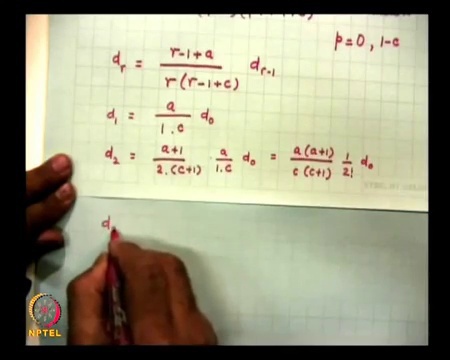 p = 0, 1-c
d_r = (r-1+a) / (r(r-1+c)) d_{r-1}
d_1 = a / (1.c) d_0
d_2 = (a+1) / (2.(c+1)) · a / (1.c) d_0 = a(a+1) / (c(c+1)) 1/2! d_0
d
NPTEL